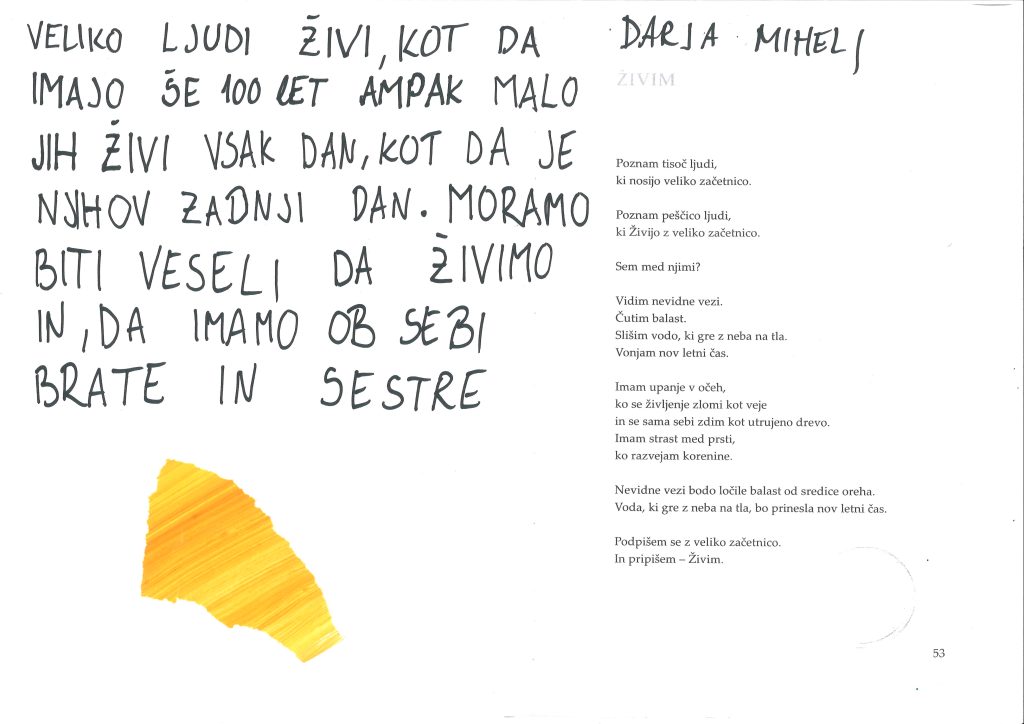 VELIKO LJUDI ŽIVI, KOT DA
IMAJO ŠE 100 LET AMPAK MALO
JIH ŽIVI VSAK DAN, KOT DA JE
NJIHOV ZADNJI DAN. MORAMO
BITI VESELI DA ŽIVIMO
IN, DA IMAMO OB SEBI
BRATE IN SESTRE
DARJA MIHELJ
ŽIVIM
Poznam tisoč ljudi,
ki nosijo veliko začetnico.
Poznam peščico ljudi,
ki Živijo z veliko začetnico.
Sem med njimi?
Vidim nevidne vezi.
Čutim balast.
Slišim vodo, ki gre z neba na tla.
Vonjam nov letni čas.
Imam upanje v očeh,
ko se življenje zlomi kot veje
in se sama sebi zdim kot utrujeno drevo.
Imam strast med prsti,
ko razvejam korenine.
Nevidne vezi bodo ločile balast od sredice oreha.
Voda, ki gre z neba na tla, bo prinesla nov letni čas.
Podpišem se z veliko začetnico.
In pripišem – Živim.
53